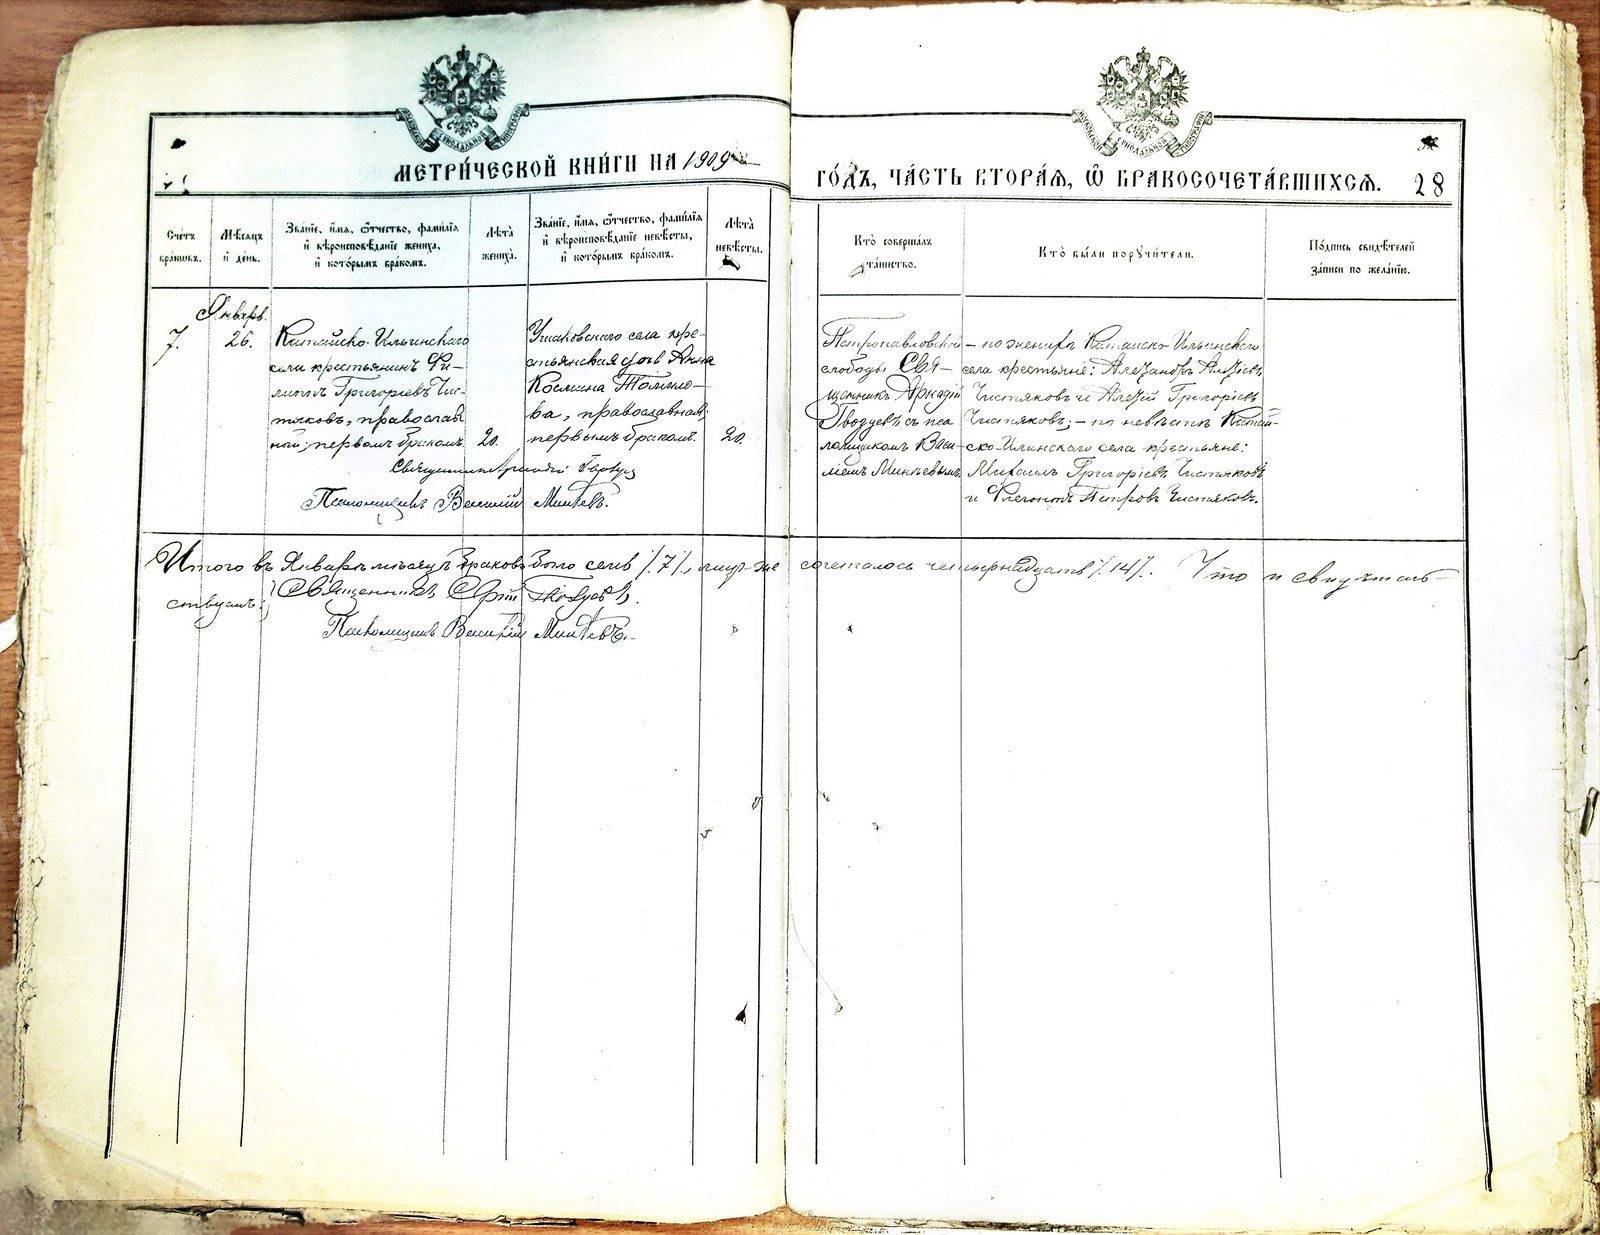 МЕТРИ́ЧЕСКОЙ КНИ́ГИ НА 1909
ГО́ДЪ, ЧА́СТЬ ВТОРА́Я, Ѽ БРАКОСОЧЕТА́ВШИХСѦ. 28
Сче́тъ бра́ковъ.
Мѣ́сѧцъ и҆ де́нь.
Зва́нїе, и҆́мѧ, ѻ҆́тчество, фами́лїѧ
и҆ вѣроисповѣ́данїе жениха̀,
и҆ кото́рымъ бра́комъ.
Лѣ́та жениха̀.
Зва́нїе, и҆́мѧ, ѻ҆́тчество, фами́лїѧ
и҆ вѣроисповѣ́данїе невѣ́сты,
и҆ кото́рымъ бра́комъ.
Лѣ́та невѣ́сты.
Кто̀ соверша́лъ
та́инство.
Кто̀ бы́ли порꙋчи́тели.
По́дпись свидѣ́телей
за́писи по жела́нїю.
Январь
7.
26.
Катайско-Ильинскаго
села крестьянинъ Фи-
липпъ Григоріевъ Чис-
тяковъ, православ
ный; первымъ бракомъ.
20.
Ушаковскаго села кре-
стьянская дочь Анна
Космина Томило-
ва, православная,
первымъ бракомъ.
20.
Петропавловской
слободы Свя-
щенникъ Аркадій
Гвоздевъ съ пса
ломщикомъ Васи-
ліемъ Минѣевымъ.
– по женихѣ Катайско-Ильинскаго
села крестьяне: Александръ Алексѣевъ
Чистяковъ и Алексѣй Григоріевъ
Чистяковъ; – по невѣстѣ Катай-
ско-Ильинскаго села крестьяне:
Михаилъ Григоріевъ Чистяковъ
и Флегонтъ Петровъ Чистяковъ.
Священникъ Аркадій Гвоздевъ
Псаломщикъ Василій Минѣевъ.
Итого въ Январѣ мѣсяцѣ браковъ было семь /.7/., лицъ-же сочеталось четырнадцать /.14/. Что и свидѣтель-
ствуемъ: Священникъ Аркадій Гвоздевъ.
Псаломщикъ Василій Минѣевъ.